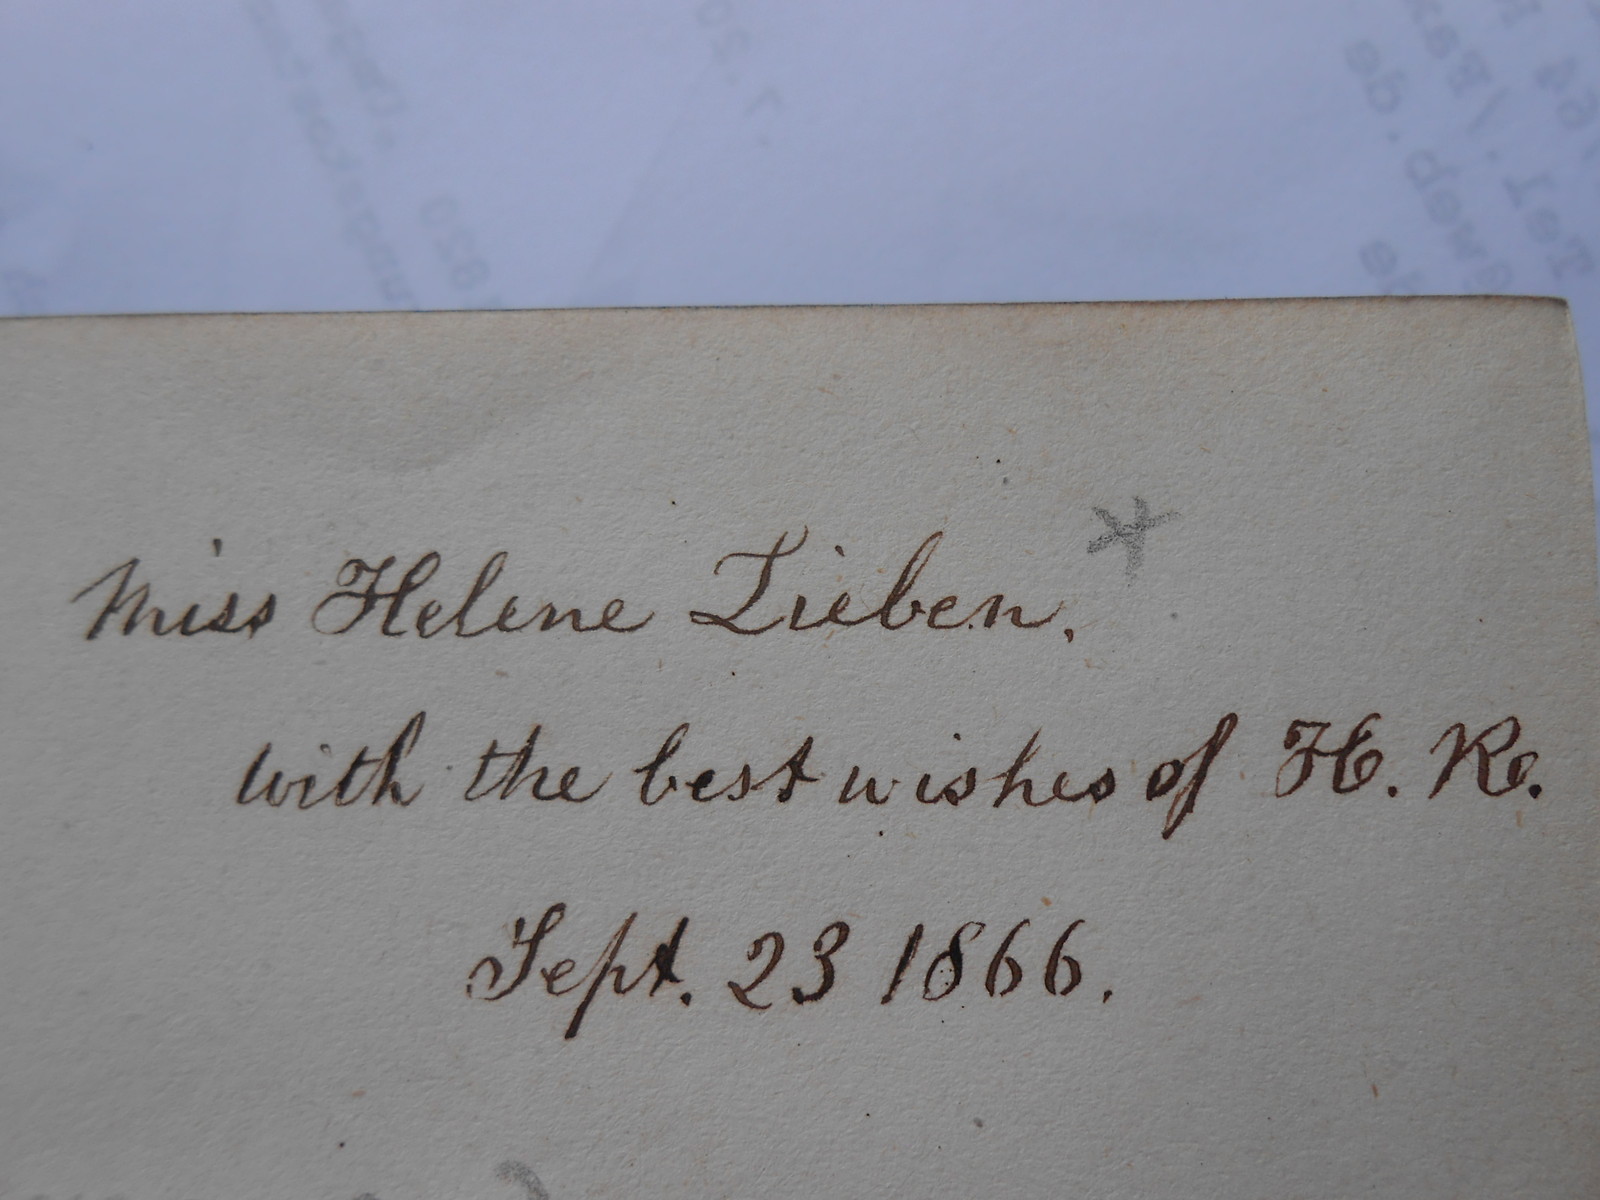 Miss Helene Lieben,
with the best wishes of H. R.
Sept. 23 1866.